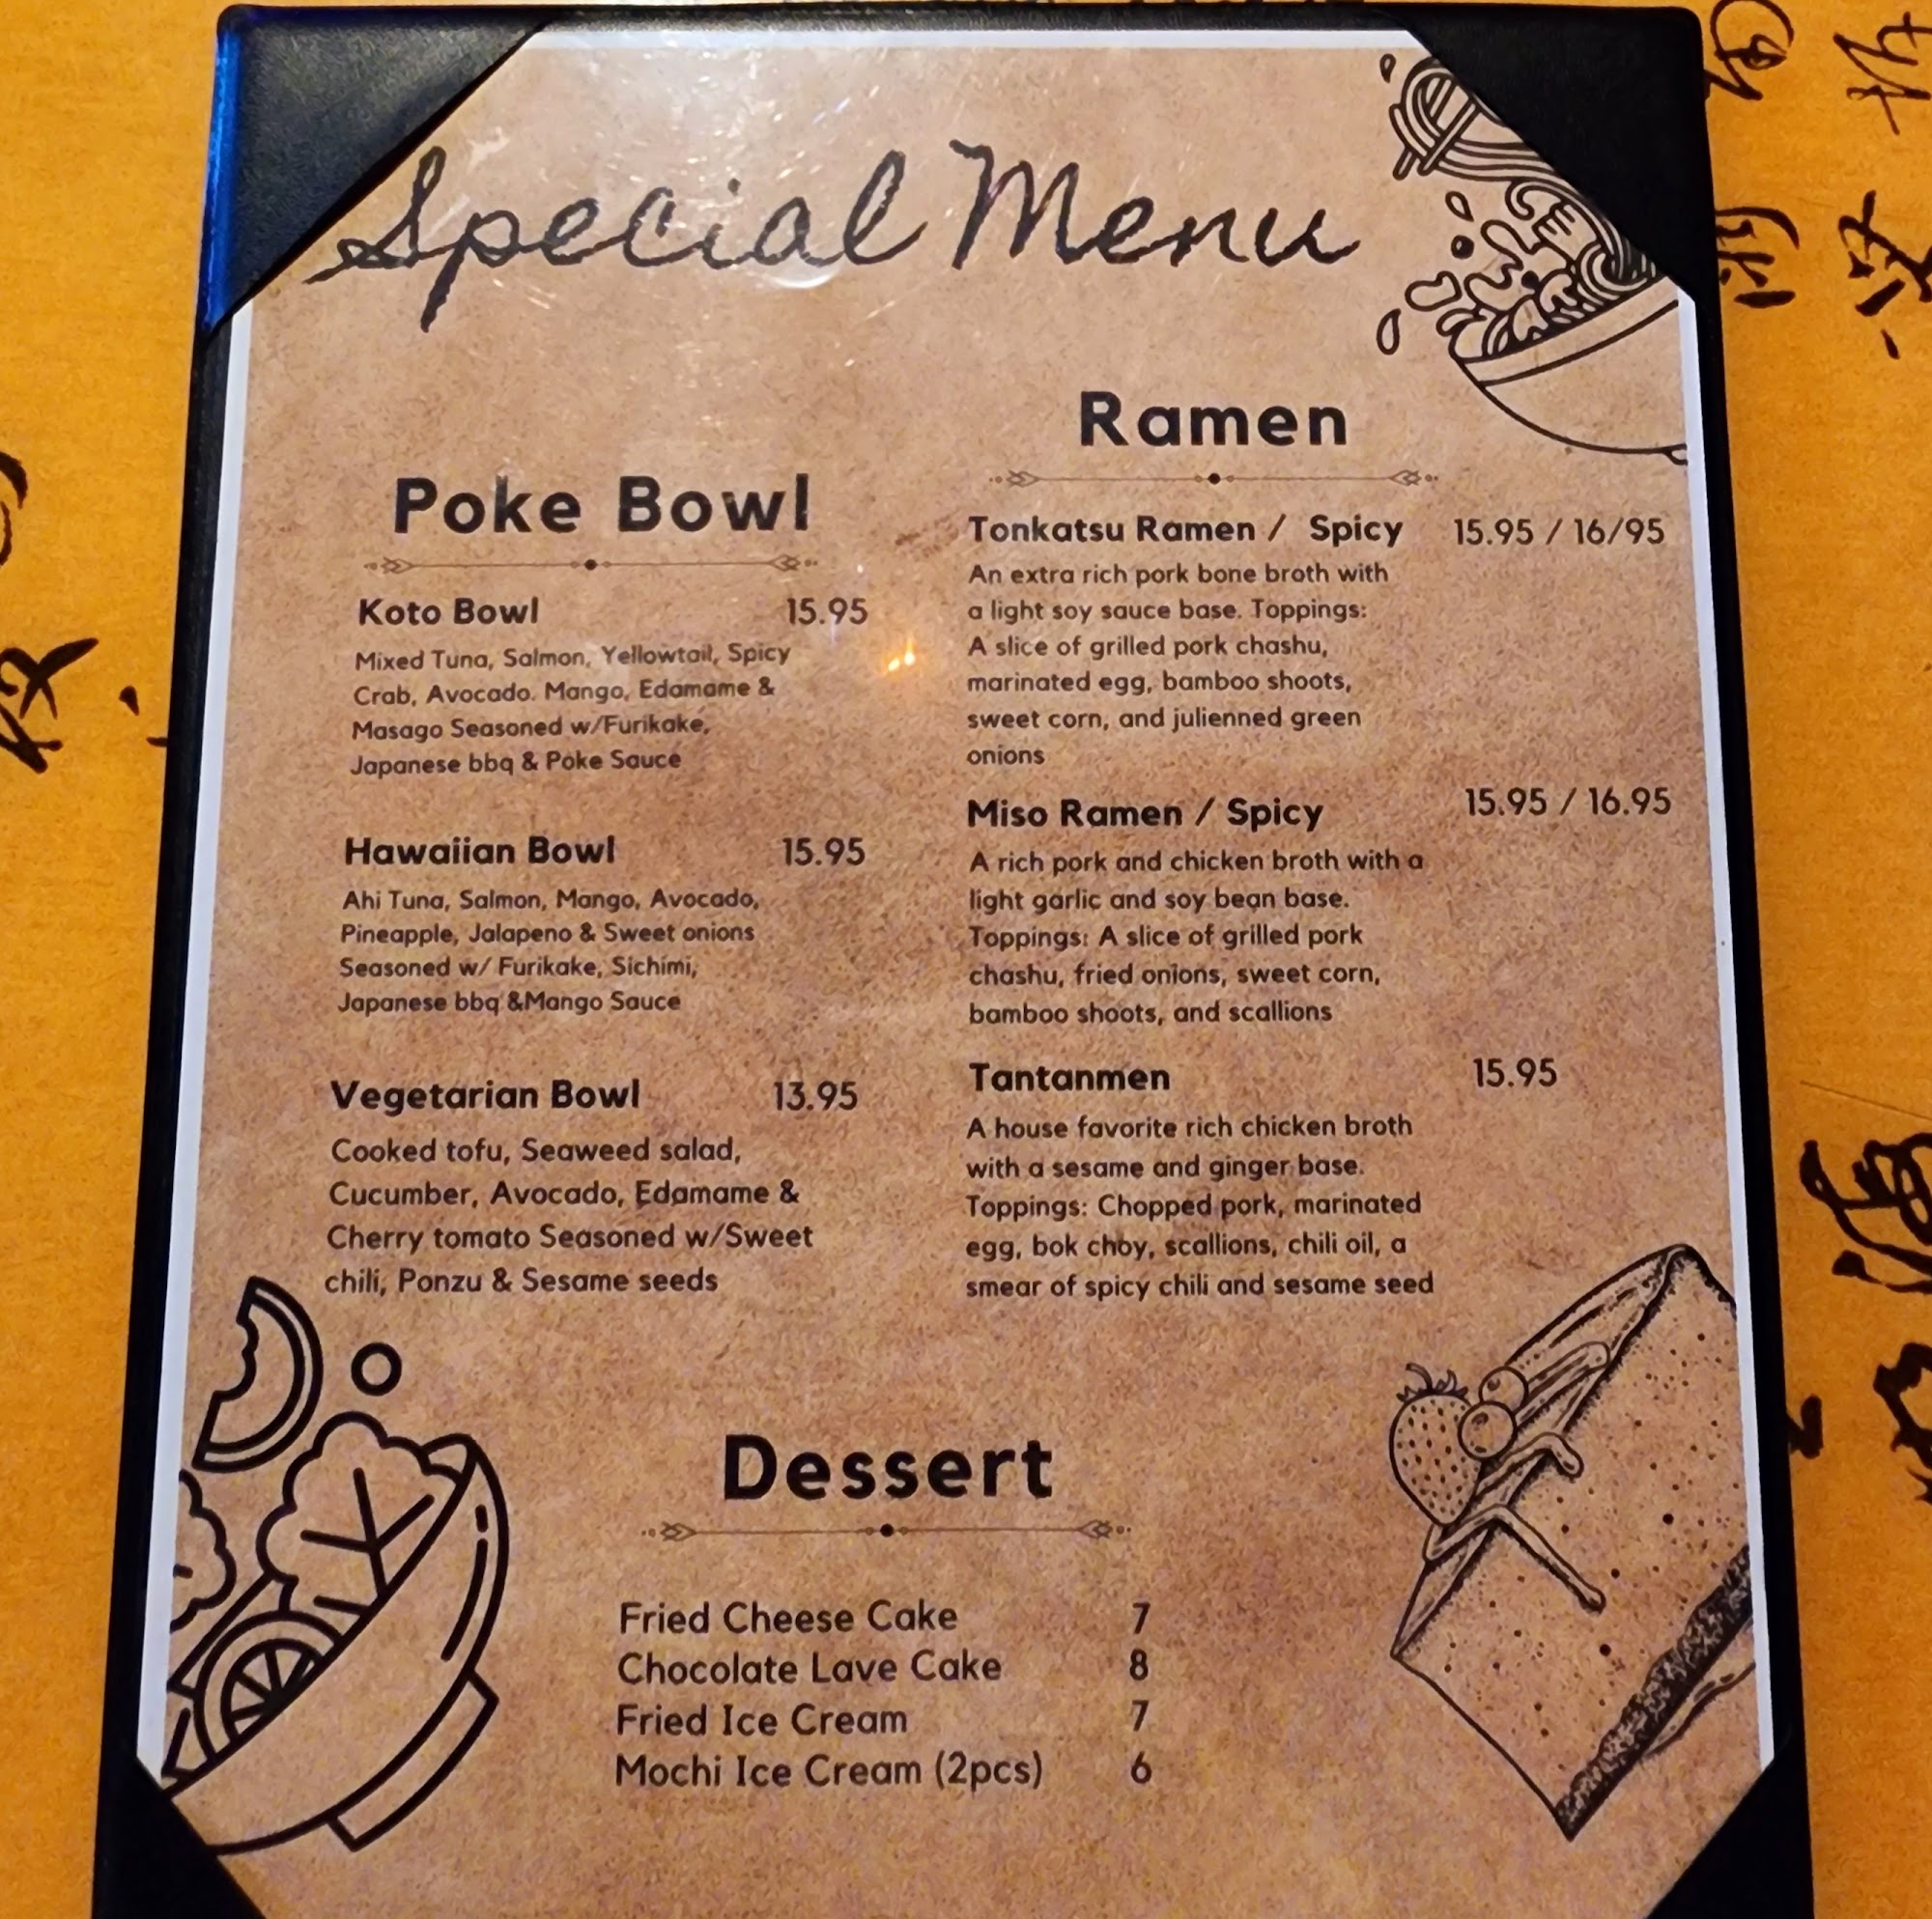 Special Menu
Poke Bowl
Koto Bowl 15.95
Mixed Tuna, Salmon, Yellowtail, Spicy
Crab, Avocado. Mango, Edamame &
Masago Seasoned w/Furikake,
Japanese bbq & Poke Sauce
Hawaiian Bowl 15.95
Ahi Tuna, Salmon, Mango, Avocado,
Pineapple, Jalapeno & Sweet onions
Seasoned w/ Furikake, Sichimi,
Japanese bbq &Mango Sauce
Vegetarian Bowl 13.95
Cooked tofu, Seaweed salad,
Cucumber, Avocado, Edamame &
Cherry tomato Seasoned w/Sweet
chili, Ponzu & Sesame seeds
Ramen
Tonkatsu Ramen / Spicy 15.95 / 16/95
An extra rich pork bone broth with
a light soy sauce base. Toppings:
A slice of grilled pork chashu,
marinated egg, bamboo shoots,
sweet corn, and julienned green
onions
Miso Ramen / Spicy 15.95 / 16.95
A rich pork and chicken broth with a
light garlic and soy bean base.
Toppings: A slice of grilled pork
chashu, fried onions, sweet corn,
bamboo shoots, and scallions
Tantanmen 15.95
A house favorite rich chicken broth
with a sesame and ginger base.
Toppings: Chopped pork, marinated
egg, bok choy, scallions, chili oil, a
smear of spicy chili and sesame seed
Dessert
Fried Cheese Cake 7
Chocolate Lave Cake 8
Fried Ice Cream 7
Mochi Ice Cream (2pcs) 6